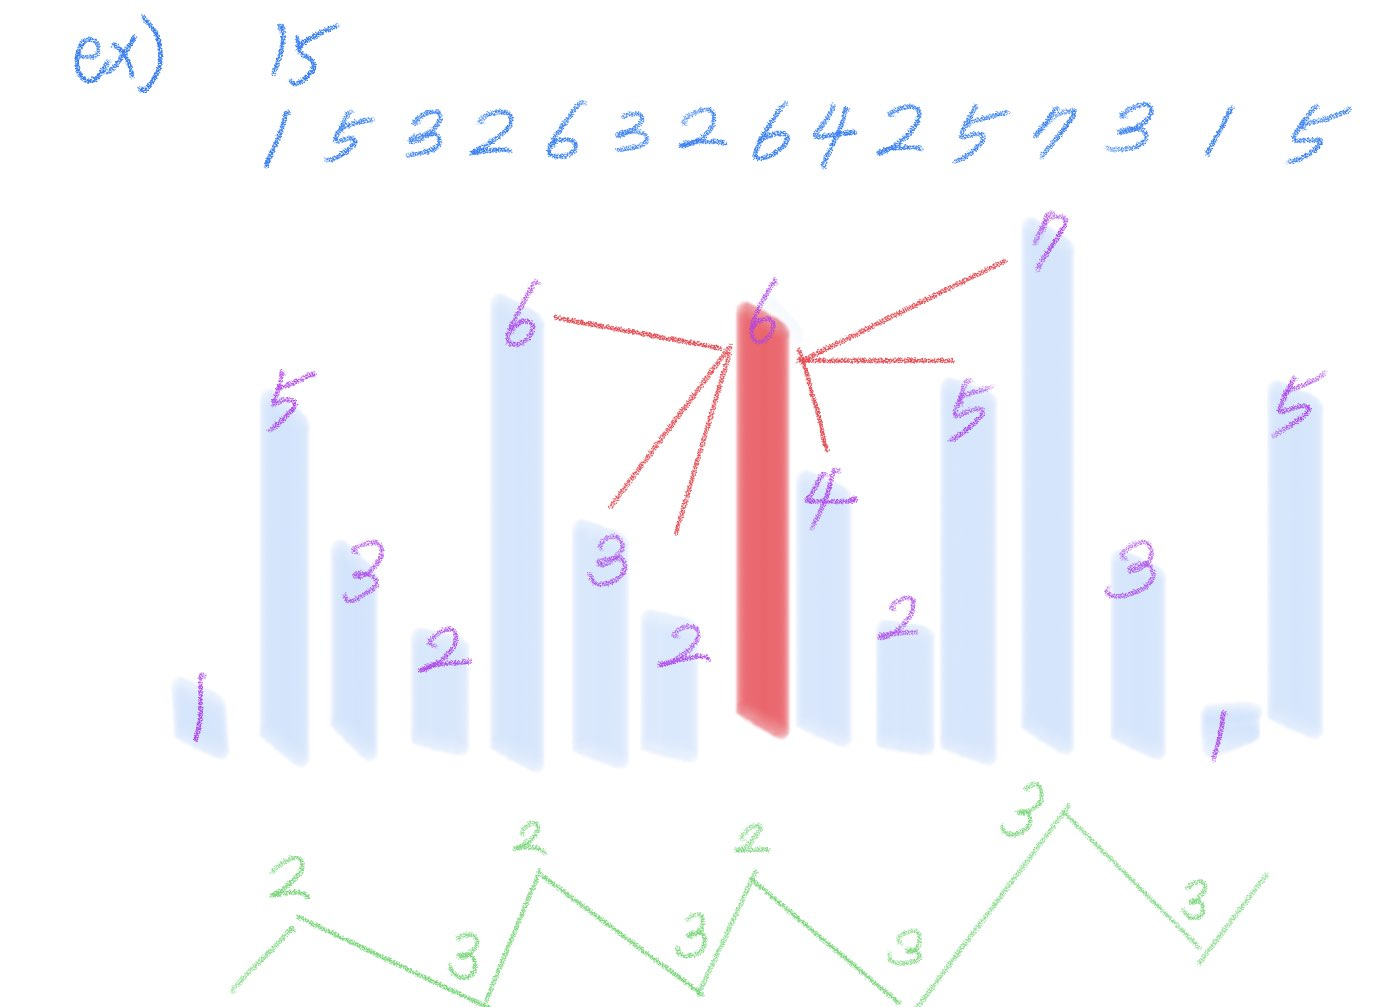 ex) 15
1 5 3 2 6 3 2 6 4 2 5 7 3 1 5
1 5 3 2 6 3 2 6 4 2 5 7 3 1 5
2 3 2 3 2 3 3 3